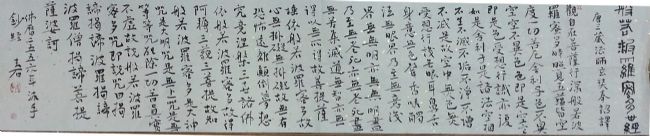 般若波羅蜜多心經
唐三藏法師玄奘奉詔譯
觀自在菩薩行深般若波
羅蜜多時照見五蘊皆空
度一切苦厄舍利子色不異
空空不異色色即是空空即
是色受想行識亦復
如是舍利子是諸法空相
不生不滅不垢不淨不增
不減是故空中無色無
受想行識無眼耳鼻舌
身意無色聲香味觸
法無眼界乃至無意識
界無無明亦無無明盡
乃至無老死亦無老死盡
無苦集滅道無智亦無
得以無所得故菩提薩
埵依般若波羅蜜多故
心無罣礙無罣礙故無有
恐怖遠離顛倒夢想
究竟涅槃三世諸佛
依般若波羅蜜多故得
阿耨多羅三藐三菩提故知
般若波羅蜜多是大神
咒是大明咒是無上咒是無
等等咒能除一切苦真實
不虛故說般若波羅蜜
多咒即說咒曰揭
諦揭諦波羅揭諦
波羅僧揭諦菩提
薩婆訶
佛曆二五五 弟子
書